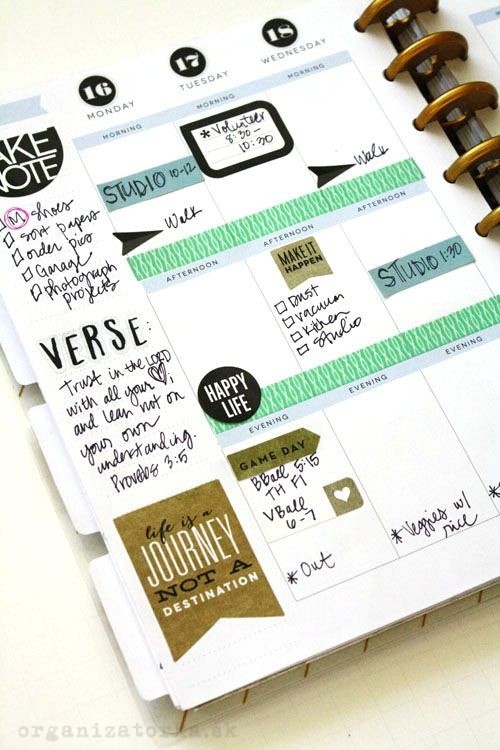 16
MONDAY
17
TUESDAY
18
WEDNESDAY
MORNING
MORNING
MORNING
AKE
NOTE
M Shoes
Sort Papers
Order pics
Garage
Photograph
projects
STUDIO 10-12
Walk
* Volunteer
8:30-
10:30
Walk
AFTERNOON
AFTERNOON
AFTERNOON
MAKE IT
HAPPEN
Dust
Vacuum
Kitchen
Studio
STUDIO 1:30
VERSE:
Trust in the LORD
with all your ♡,
and lean not on
your own
understanding.
Proverbs 3:5
HAPPY
LIFE
EVENING
EVENING
EVENING
GAME DAY
BBall 5:15
TH FI
VBall
6-7
* Out
* Veggies w/
rice
life is a
JOURNEY
NOT A
DESTINATION